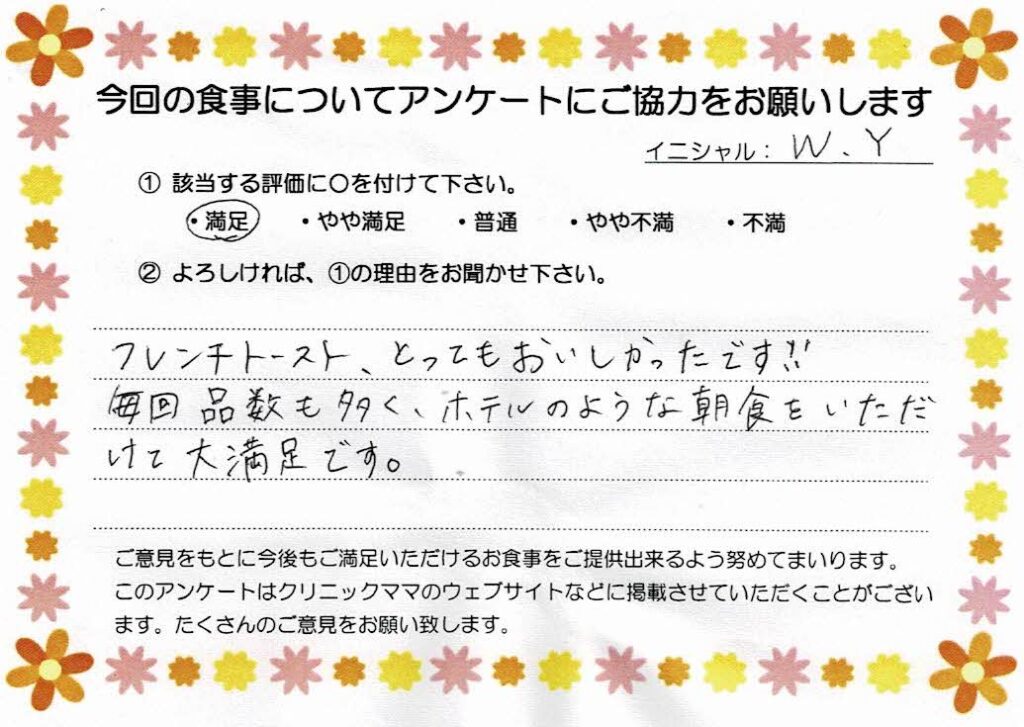 今回の食事についてアンケートにご協力をお願いします
イニシャル： W、Y
① 該当する評価に〇を付けて下さい。
・満足 ・やや満足 ・普通 ・やや不満 ・不満
② よろしければ、①の理由をお聞かせ下さい。
フレンチトースト、とってもおいしかったです!!
毎回品数も多く、ホテルのような朝食をいただ
けて大満足です。
ご意見をもとに今後もご満足いただけるお食事をご提供出来るよう努めてまいります。
このアンケートはクリニックママのウェブサイトなどに掲載させていただくことがござい
ます。たくさんのご意見をお願い致します。